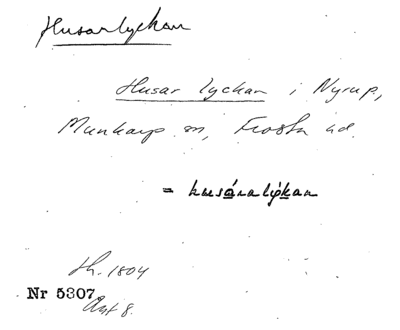 Husarlyckan
Husar lyckan i Nyrup,
Munkarp sn, Frosta hd.
= husáralykan
lh. 1804
Nr 5307
Akt 8.